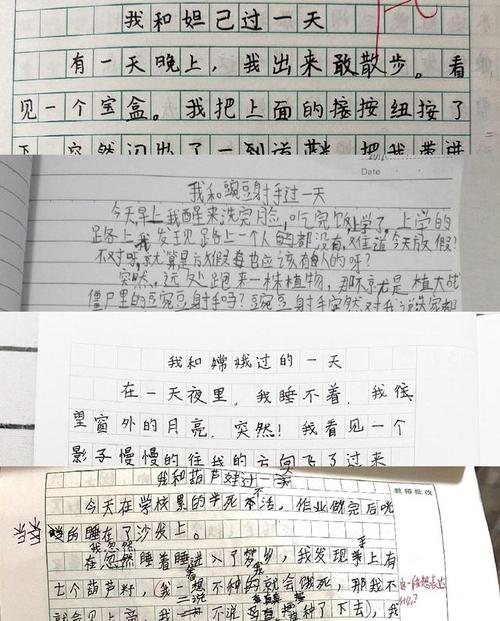 我和妲己过一天
有一天晚上，我出来敢散步。看
见一个宝盒。我把上面的接按纽按了
下，突然闪出了一到道 把我带进
Date
我和豌豆射手过一天
今天早上我醒来洗完，吃完饭上学了。上学的
路上我发现路上一个人的都没有，难道今天放假？
不对呀，就算是放假也应该有人的呀？
突然，远处跑来一株植物，那不是植大战
僵尸里的豌豆射手吗？豌豆射手突然对我说
我和嫦娥过的一天
在一天夜里，我睡不着，我往
望窗外的月亮，突然！我看见一个
影子慢慢的往我的方向飞了过来
我和葫芦娃过一天
教师批改
今天在学校累的半死不活，作业做完后
的睡在了沙发上。
我忽然
在睡着睡进入了梦乡，我发现手上有
七个葫芦籽，(我一想不种的就会饿死，那我不
这一段想表达
什么？
就会见上帝，我 不说 种了下去)，我